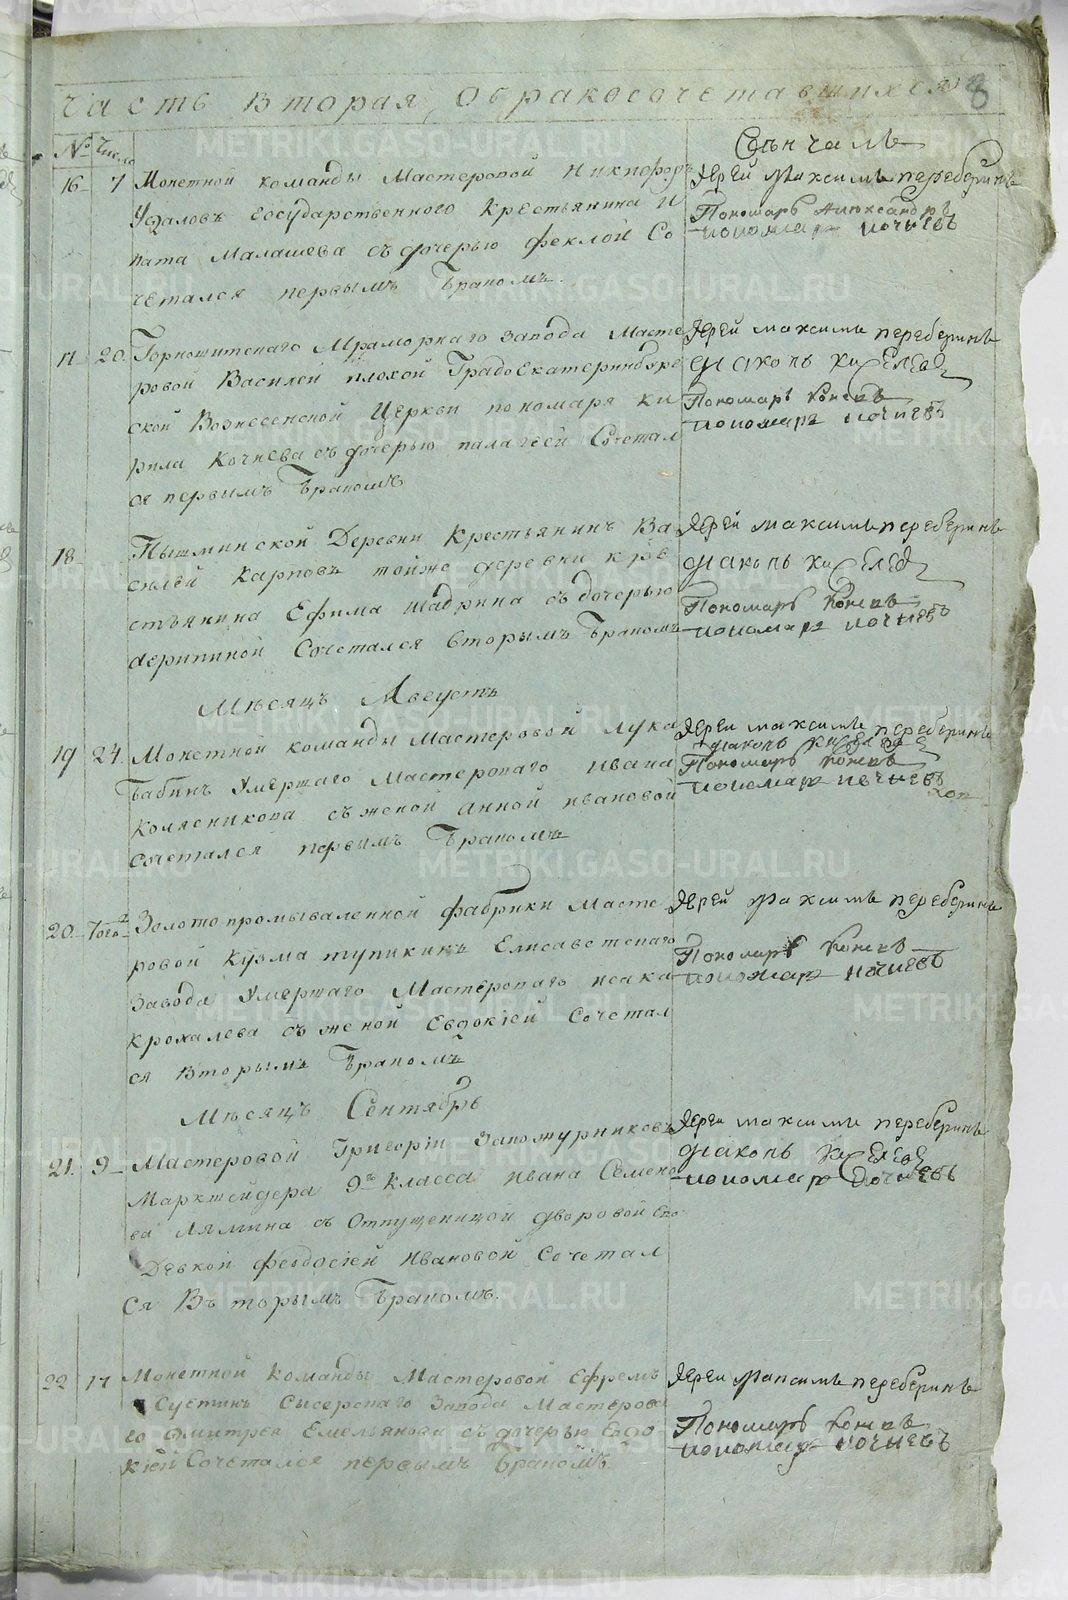 часть вторая, о бракосочетавшихся
8
№ Число
Венчали
16 7 Монетной команды Мастеровой Никифоръ
Уфаловъ государственного крестьянина И
пата Малашева съ дочерью Феклой Со
четался первымъ Бракомъ.
Иерей Максимъ Переберинъ
Пономарь Александръ
пономарь Кочневъ
17 20. Горнощитскаго Мраморнаго завода Масте
ровой Василей плохой Градоекатеринбург
ской Вознесенской Церкви пономаря Ки
рила Кочнева съ дочерью палагеей Сочетал
ся первымъ Бракомъ
Иерей Максимъ Переберинъ
диаконъ
Пономарь Кочневъ
пономарь Кочневъ
18 Пышминской Деревни Крестьянинъ Ва
силей Карповъ тойже деревни кре
стьянина Ефима Шадрина съ дочерью
акрипиной Сочетался вторымъ Бракомъ
Иерей Максимъ Переберинъ
диаконъ
Пономарь Кочневъ
пономарь Кочневъ
Мѣсяцъ Августъ
19 24. Монетной команды Мастеровой Лука
Бабинъ Умершаго Мастерскаго Ивана
Колясникова съ женой Анной ивановой
сочетался первымъ Бракомъ
Иерей Максимъ Переберинъ
диаконъ
Пономарь Кочневъ
пономарь Кочневъ
20. Того Золотопромываленной фабрики Масте
ровой Кузма тупикинъ Елисаветскаго
Завода Умершаго Мастерскаго исака
крохалева съ женой Евдокіей Сочетал
ся вторымъ Бракомъ
Иерей Максимъ Переберинъ
Пономарь Кочневъ
пономарь Кочневъ
Мѣсяцъ Сентябрь
21. 9 Мастеровой Григорій Запожурниковъ
Маркшейдера 9гъ класса Ивана Семено
ва Лямина съ Отпущеницой дворовой Его
Девкой феодосіей Ивановой Сочетал
ся Въторымъ Бракомъ.
Иерей Максимъ Переберинъ
диаконъ
пономарь Кочневъ
22 17 Монетной Команды Мастеровой Ефремъ
Сустинъ Сысерскаго Завода Мастерова
го Дмитрея Емельянова съ дочерью Евдо
кіей Сочетался первымъ Бракомъ
Иерей Максимъ Переберинъ
Пономарь Кочневъ
пономарь Кочневъ
METRIKI.GASO-URAL.RU